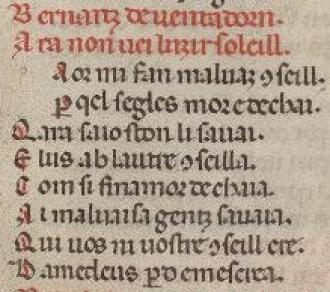 Bernartz de uentadorn.
Ara non uei luzir soleill.
Aor mi fan maluaz ↄseill.
Pqel segles mor e dechai.
Qara sauoston li sauai.
E lus ab lautre ↄseilla.
Com si finamor dechaia.
Ai maluaisa gentz sauaia.
Qui uos ni uostre ↄseill cre.
Damedeus pde mescrea.